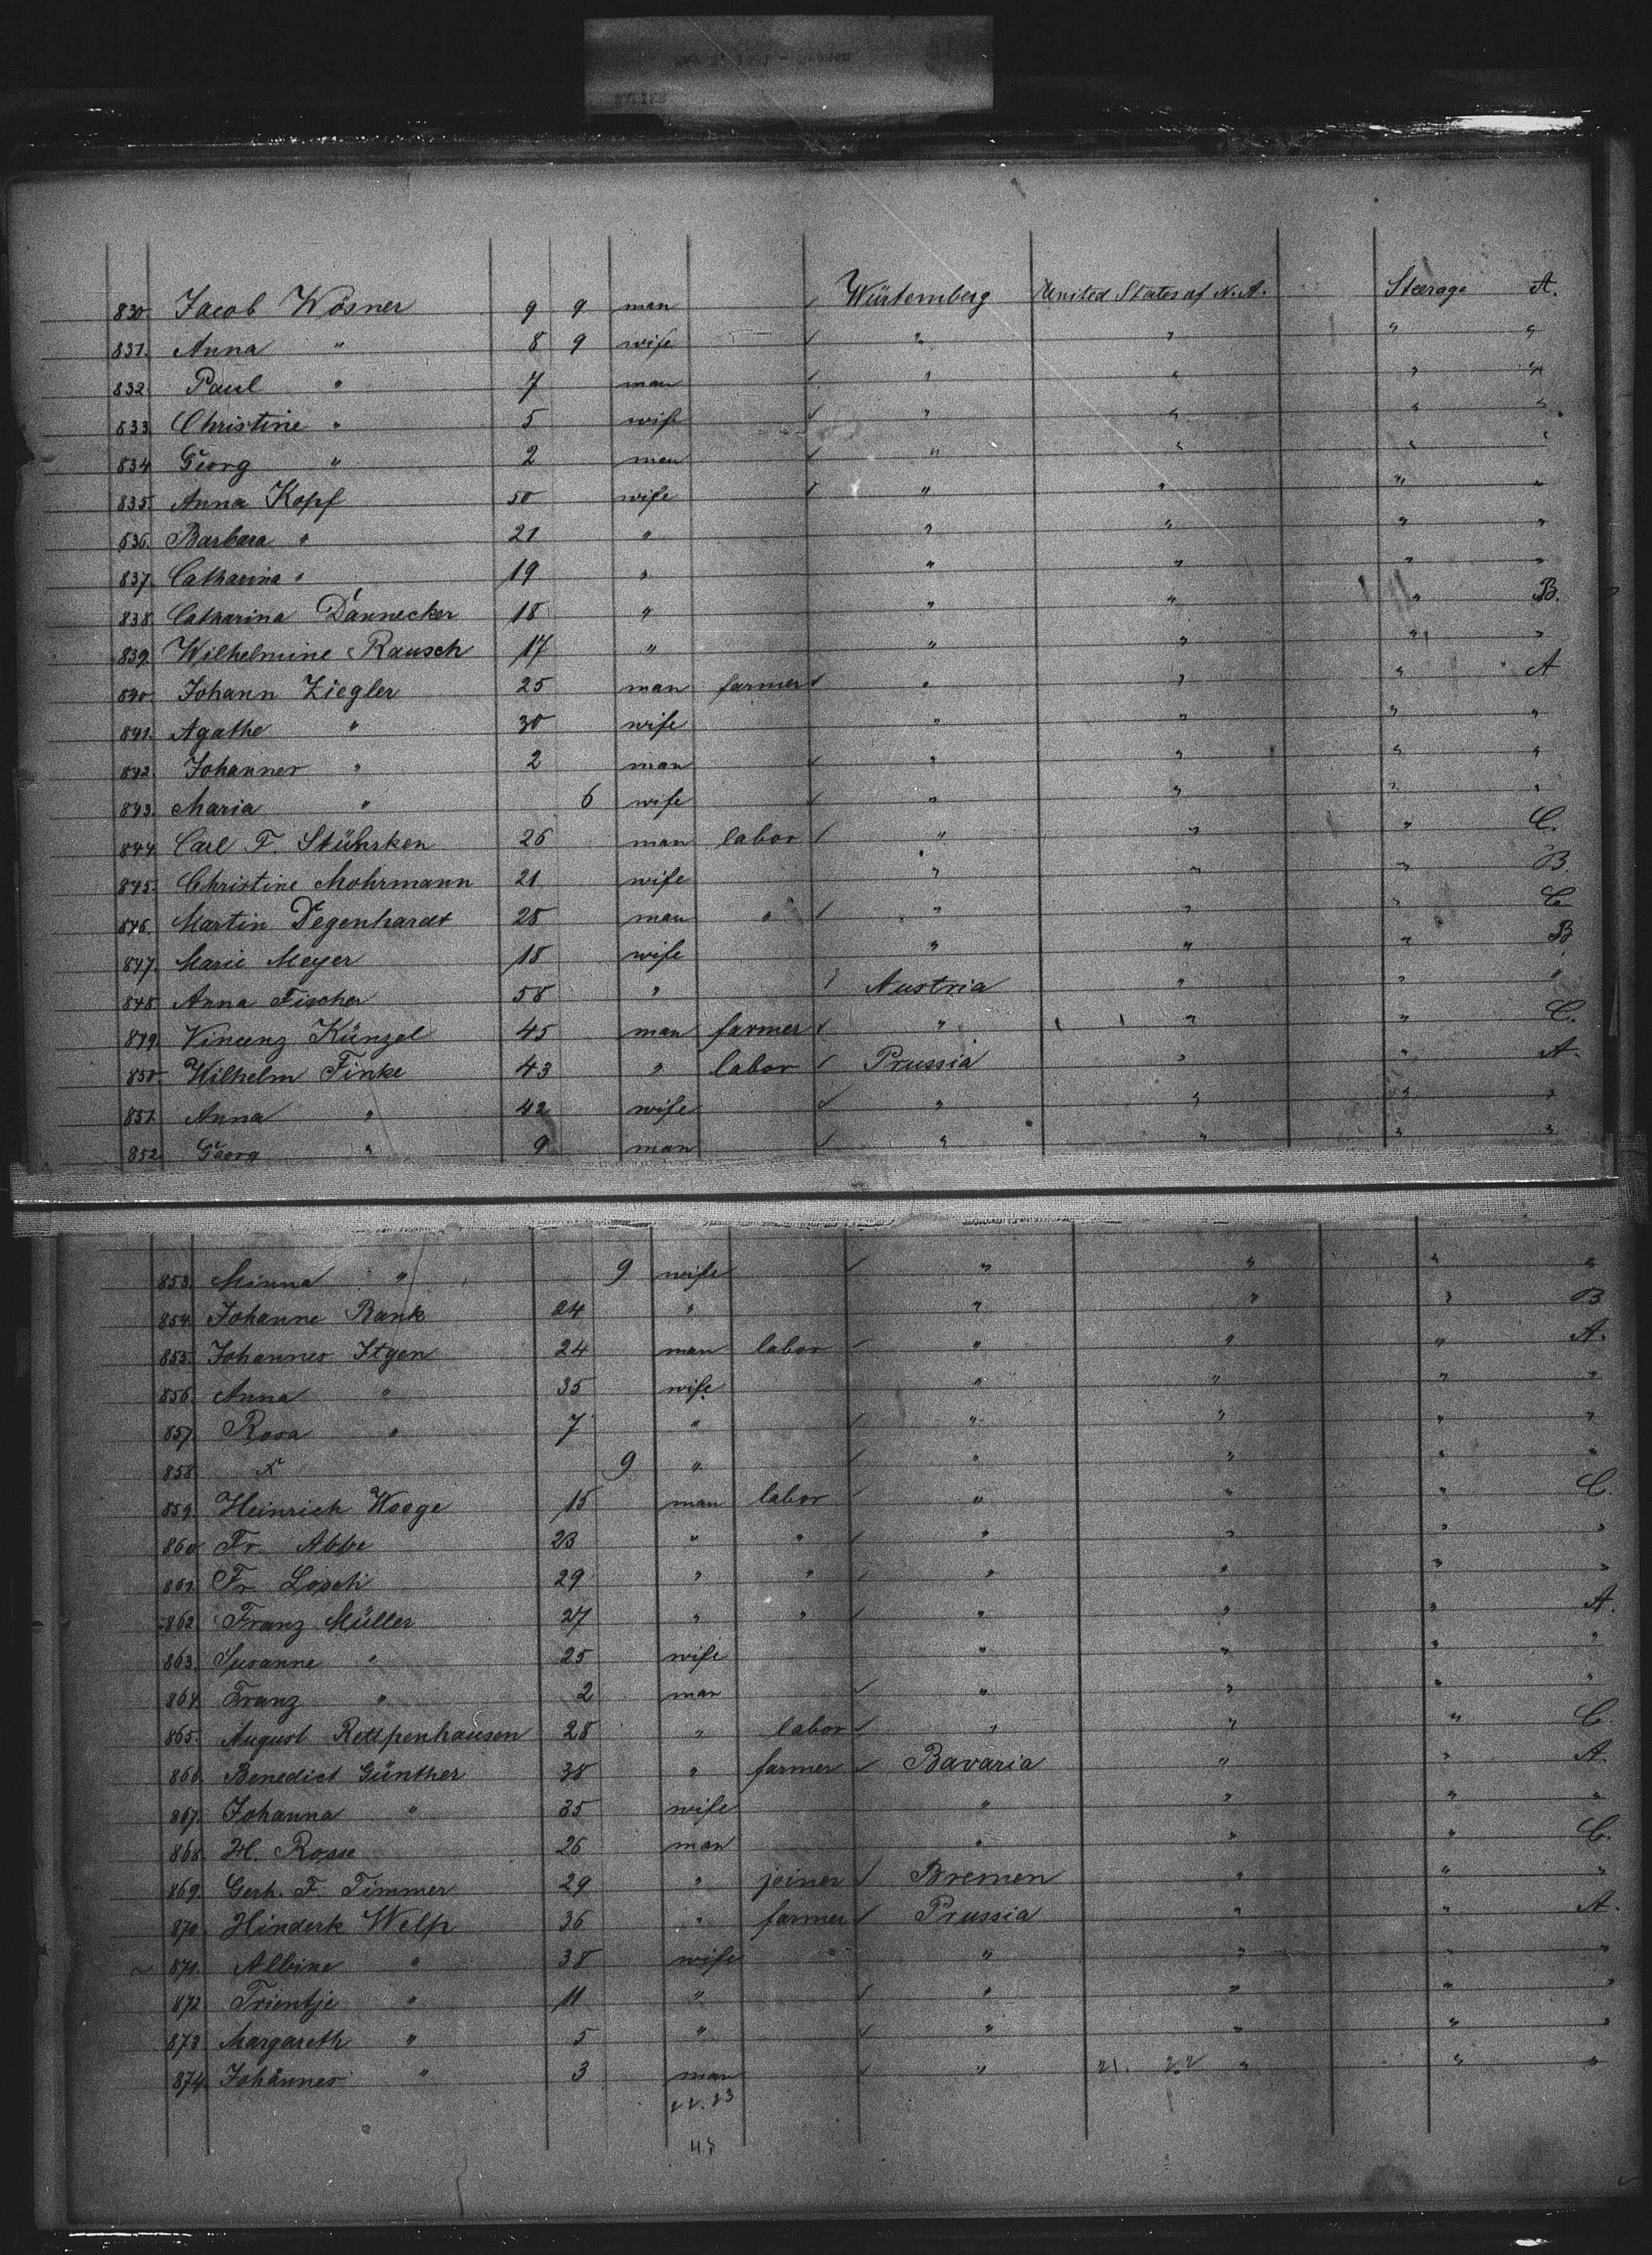 830. Jacob Wösner 9 9 man Würtemberg United States of N.A. Steerage A.
831. Anna " 8 9 wife " " " "
832. Paul " 7 man " " " "
833. Christine " 5 wife " " " "
834. Georg " 2 man " " " "
835. Anna Kopf 50 wife " " " "
836. Barbara " 21 " " " " "
837. Catharina " 19 " " " " "
838. Catharina Dannecker 18 " " " " B.
839. Wilhelmine Rausch 17 " " " " "
840. Johann Ziegler 25 man farmer " " " A
841. Agathe " 30 wife " " " "
842. Johannes " 2 man " " " "
843. Maria " 6 wife " " " "
844. Carl F. Stührken 26 man labor " " " C.
845. Christine Mohrmann 21 wife " " " B.
846. Martin Degenhardt 28 man " " " " C
847. Marie Meyer 18 wife " " " B
848. Anna Fischer 58 " Austria " " "
849. Vincenz Künzel 45 man farmer " " " C.
850. Wilhelm Finke 43 " labor Prussia " " A.
851. Anna " 42 wife " " " "
852. Georg " 9 man " " " "
853. Minna " 9 wife " " " "
854. Johanne Bank 24 " " " " B
855. Johannes Itgen 24 man labor " " " A.
856. Anna " 35 wife " " " "
857. Rosa " 7 " " " " "
858. 9 " " " " "
859. Heinrich Wooge 15 man labor " " " C.
860. Fr. Abbe 23 " " " " " "
861. Fr. 29 " " " " " "
862. Franz Müller 27 " " " " " A.
863. Susanne " 25 wife " " " "
864. Franz " 2 man " " " "
865. August Rettpenhausen 28 " labor " " " C.
866. Benedict Günther 38 " farmer Bavaria " " A.
867. Johanna " 35 wife " " " "
868. H. Rosse 26 man " " " C.
869. Gerh. F. Timmer 29 " joiner Bremen " " "
870. Hinderk Welp 36 " farmer Prussia " " A.
871. Albine " 38 wife " " " "
872. Trientje " 11 " " " " "
873. Margareth " 5 " " " " "
874. Johannes " 3 man " 21. 22 " " "
22. 23